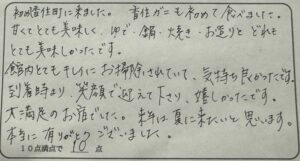 初回香住町に来ました。香住ガニも初めて食べました。
甘くてとても美味しく、ゆで・鍋・焼き・お造りと どれも
とても美味しかったです。
館内とてもキレイにお掃除されていて、気持ち良かったです。
到着時より、笑顔で迎えて下さり、嬉しかったです。
大満足のお宿でした。来年は夏に来たいと思います。
本当に有りがとうございました。
10点満点で 10 点